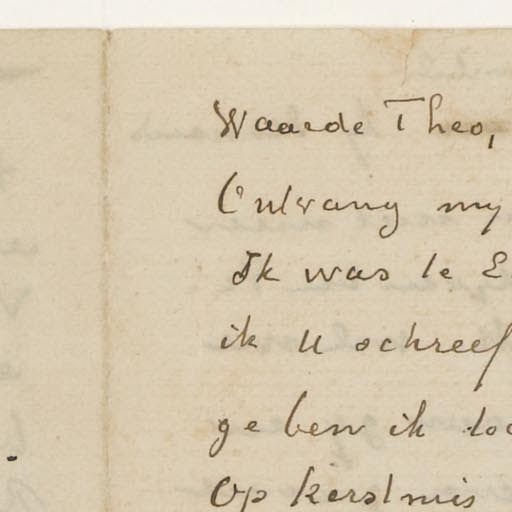 Waarde Theo,
Ontvang my
Ik was te E
ik U schreef
ge ben ik toc
Op kerstmis